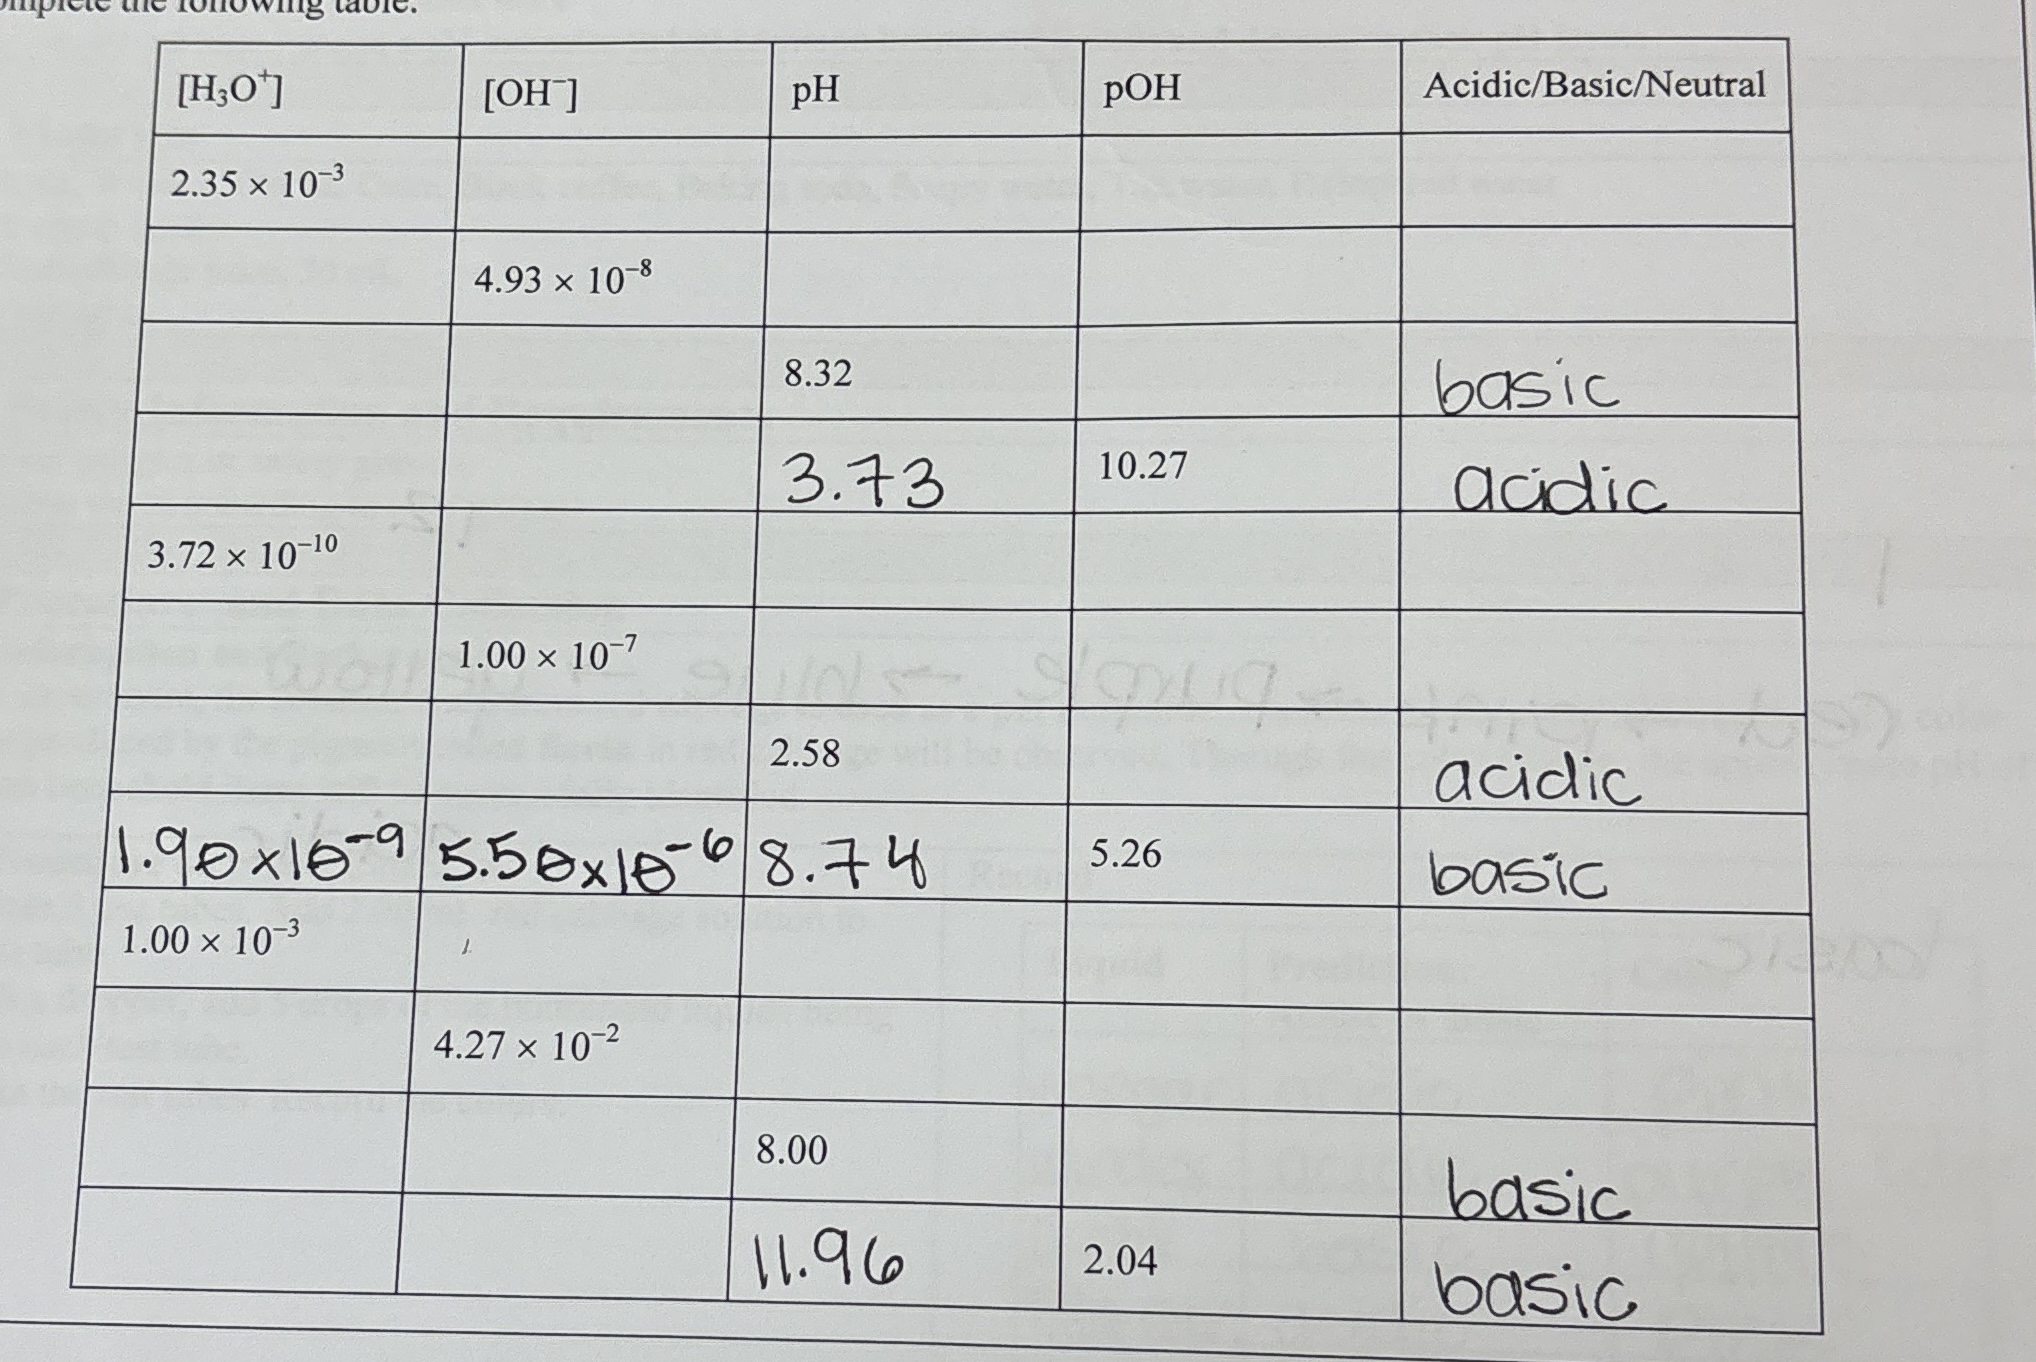 the following table.
[H₃O⁺] [OH⁻] pH pOH Acidic/Basic/Neutral
2.35 × 10⁻³
4.93 × 10⁻⁸
8.32 basic
3.73 10.27 acidic
3.72 × 10⁻¹⁰
1.00 × 10⁻⁷
2.58 acidic
1.90×10⁻⁹ 5.50×10⁻⁶ 8.74 5.26 basic
1.00 × 10⁻³
4.27 × 10⁻²
8.00 basic
11.96 2.04 basic